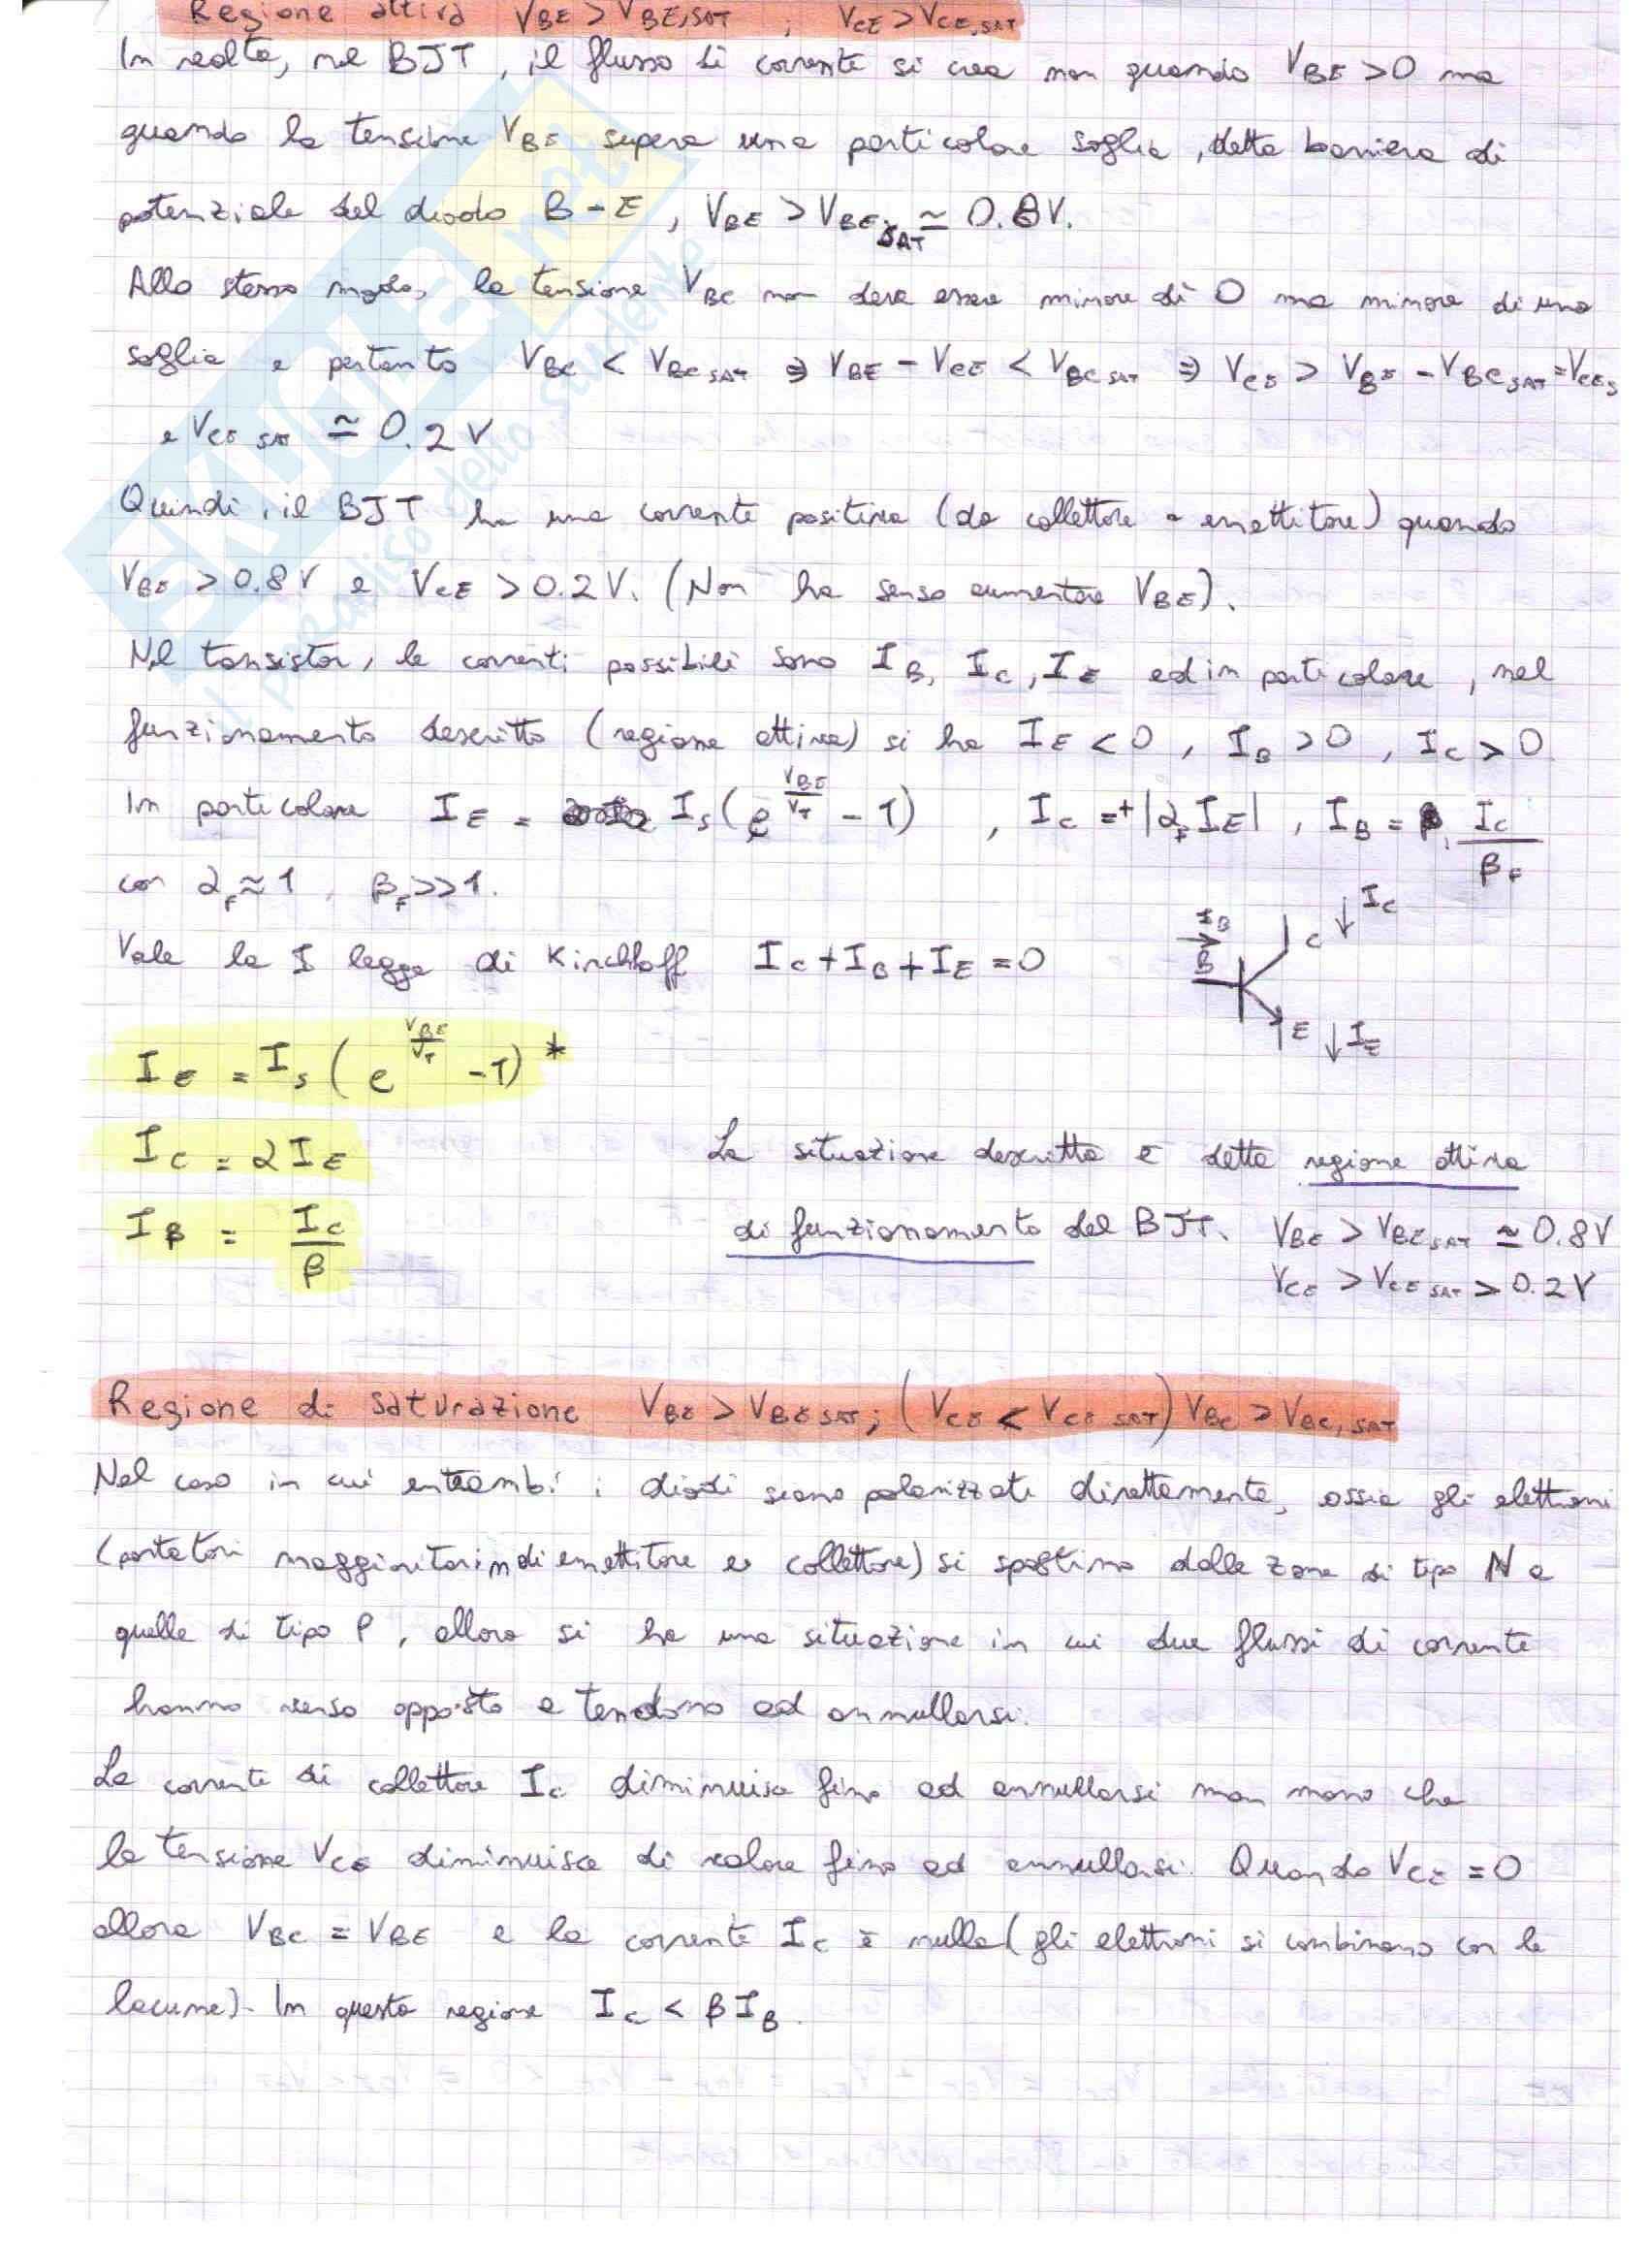 Regione attiva VBE > VBE,SAT ; VCE > VCE,SAT
In realtà, nel BJT, il flusso di corrente si crea non quando VBE > 0 ma
quando la tensione VBE supera una particolare soglia, detta barriera di
potenziale del diodo B-E, VBE > VBE,SAT ≃ 0.8V.
Allo stesso modo, la tensione VBC non deve essere minore di 0 ma minore di una
soglia e pertanto VBC < VBC SAT ⇒ VBE - VCE < VBC SAT ⇒ VCE > VBE - VBC SAT = VCE S
e VCE SAT ≃ 0.2 V
Quindi, il BJT ha una corrente positiva (da collettore a emettitore) quando
VBE > 0.8V e VCE > 0.2V. (Non ha senso aumentare VBE).
Nel tansistor, le correnti possibili sono IB, IC, IE ed in particolare, nel
funzionamento descritto (regione attiva) si ha IE < 0, IB > 0, IC > 0
In particolare IE = IS (e^(VBE/VT) - 1), IC = +|αF IE|, IB = IC/βF
con αF ≈ 1, βF >> 1.
Vale la I legge di Kirchhoff IC + IB + IE = 0
IB B C IC E IE
IE = IS (e^(VBE/VT) - 1) *
IC = α IE
IB = IC/β
La situazione descritta è detta regione attiva
di funzionamento del BJT. VBE > VBE SAT ≃ 0.8V
VCE > VCE SAT > 0.2V
Regione di saturazione VBE > VBE SAT; (VCE < VCE SAT) VBC > VBC,SAT
Nel caso in cui entrambi i diodi siano polarizzati direttamente, ossia gli elettroni
(portatori maggioritari in di emettitore e collettore) si spostino dalle zone di tipo N a
quelle di tipo P, allora si ha una situazione in cui due flussi di corrente
hanno senso opposto e tendono ad annullarsi.
La corrente di collettore IC diminuisce fino ad annullarsi man mano che
la tensione VCE diminuisce di valore fino ad annullarsi. Quando VCE = 0
allora VBC = VBE e la corrente IC è nulla (gli elettroni si combinano con le
lacune). In questa regione IC < β IB.
EXUME.net
il paradiso dello studente